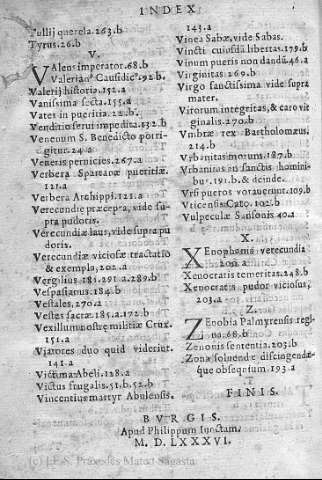 INDEX
Tullij querela. 263.b
Tyrus. 26.b
V
VAlens imperator. 68.b
Valerianꝰ Causidicꝰ. 192.b.
Valerij historia. 152.a
Vanissima secta. 155.a
Vates in pueritia. 22.b.
Venditio serui impedita. 132.b
Venenum S. Benedicto porri-
gitur. 24.a
Veneris pernicies. 267.a
Verbera Spartanæ pueritiæ.
121.a
Verbera Archippi. 121.a
Verecundię præcepta, vide su
pra pudoris.
Verecundiæ laus, vide supra pu
doris.
Verecundiæ viciosæ tractatio
& exempla, 202.a
Vergilius. 281. 291.a. 289.b
Vespasianus. 184.b
Vestales. 270.a
Vestes sacræ. 185.a. 172.b
Vexillum nostrę militiæ Crux.
151.a
Viatores duo quid viderint.
141.a
Victima Abeli. 128.a
Victus frugalis. 51.b. 52.b
Vincentius martyr Abulensis.
143.a
Vinea Sabæ, vide Sabas.
Vincti cuiusdā libertas. 179.b
Vinum pueris non dandū. 46.a
Virginitas. 269.b
Virgo sanctissima vide supra
mater.
Virorum integritas, & caro vir
ginalis. 270.b
Vmbræ rex Bartholomæus.
214.b
Vrbanitas morum. 187.b
Vrbanitas in sanctis homini-
bus. 191.b. & deinde.
Vrsi pueros vorauerunt. 109.b
Vticensis Cato. 102.b
Vulpeculæ Sansonis. 40.a
X.
XEnophontis verecundia
201.a
Xenocratis temeritas. 248.b
Xenocratis pudor viciosus,
203.a
Z.
ZEnobia Palmyrensis regi
na. 68.b
Zenonis sententia. 203.b
Zonæ soluendæ discingendę-
que obsequium. 193.a
FINIS.
BVRGIS.
Apud Philippum Iunctam.
M. D. LXXXVI.
(c) I.E.S. Práxedes Mateo Sagasta